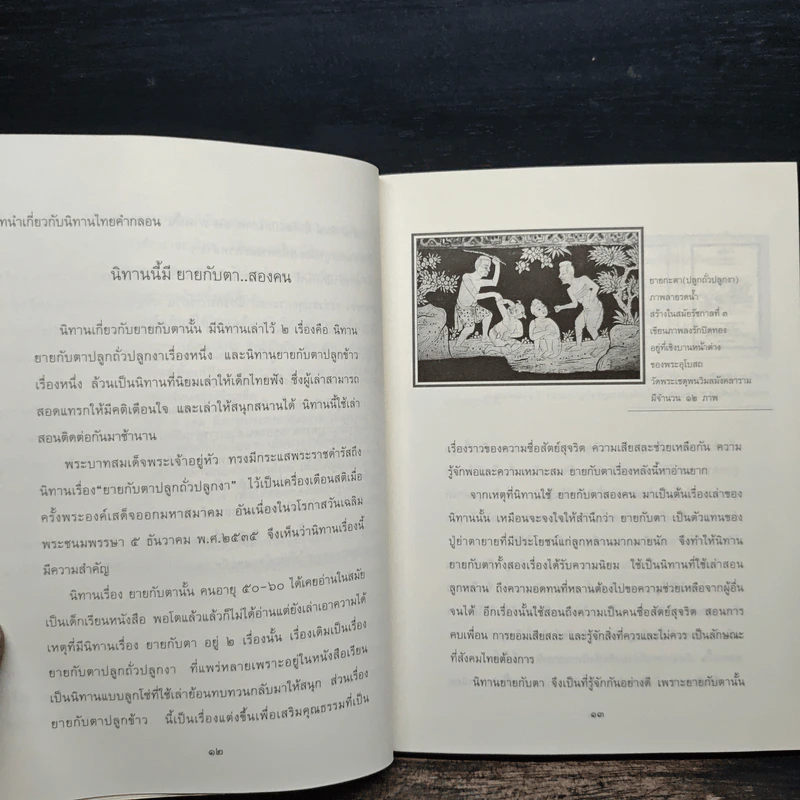 ทนำเกี่ยวกับนิทานไทยคำกลอน
นิทานนี้มี ยายกับตา..สองคน
นิทานเกี่ยวกับยายกับตานั้น มีนิทานเล่าไว้ ๒ เรื่องคือ นิทาน
ยายกับตาปลูกถั่วปลูกงาเรื่องหนึ่ง และนิทานยายกับตาปลูกข้าว
เรื่องหนึ่ง ล้วนเป็นนิทานที่นิยมเล่าให้เด็กไทยฟัง ซึ่งผู้เล่าสามารถ
สอดแทรกให้มีคติเตือนใจ และเล่าให้สนุกสนานได้ นิทานนี้ใช้เล่า
สอนติดต่อกันมาช้านาน
พระบาทสมเด็จพระเจ้าอยู่หัว ทรงมีกระแสพระราชดำรัสถึง
นิทานเรื่อง“ยายกับตาปลูกถั่วปลูกงา” ไว้เป็นเครื่องเตือนสติเมื่อ
ครั้งพระองค์เสด็จออกมหาสมาคม อันเนื่องในวโรกาสวันเฉลิม
พระชนมพรรษา ๕ ธันวาคม พ.ศ.๒๕๓๕ จึงเห็นว่านิทานเรื่องนี้
มีความสำคัญ
นิทานเรื่อง ยายกับตานั้น คนอายุ ๕๐-๖๐ ได้เคยอ่านในสมัย
เป็นเด็กเรียนหนังสือ พอโตแล้วแล้วก็ไม่ได้อ่านแต่ยังเล่าเอาความได้
เหตุที่มีนิทานเรื่อง ยายกับตา อยู่ ๒ เรื่องนั้น เรื่องเดิมเป็นเรื่อง
ยายกับตาปลูกถั่วปลูกงา ที่แพร่หลายเพราะอยู่ในหนังสือเรียน
เป็นนิทานแบบลูกโซ่ที่ใช้เล่าย้อนทบทวนกลับมาให้สนุก ส่วนเรื่อง
ยายกับตาปลูกข้าว นี้เป็นเรื่องแต่งขึ้นเพื่อเสริมคุณธรรมที่เป็น
๑๒
ยายกะตา(ปลูกถั่วปลูกงา)
ภาพลายรดน้ำ
สร้างในสมัยรัชกาลที่ ๓
เขียนภาพลงรักปิดทอง
อยู่ที่เชิงบานหน้าต่าง
ของพระอุโบสถ
วัดพระเชตุพนวิมลมังคลาราม
มีจำนวน ๑๒ ภาพ
เรื่องราวของความซื่อสัตย์สุจริต ความเสียสละช่วยเหลือกัน ความ
รู้จักพอและความเหมาะสม ยายกับตาเรื่องหลังนี้หาอ่านยาก
จากเหตุที่นิทานใช้ ยายกับตาสองคน มาเป็นต้นเรื่องเล่าของ
นิทานนั้น เหมือนจะจงใจให้สำนึกว่า ยายกับตา เป็นตัวแทนของ
ปู่ย่าตายายที่มีประโยชน์แก่ลูกหลานมากมายนัก จึงทำให้นิทาน
ยายกับตาทั้งสองเรื่องได้รับความนิยม ใช้เป็นนิทานที่ใช้เล่าสอน
ลูกหลาน ถึงความอดทนที่หลานต้องไปขอความช่วยเหลือจากผู้อื่น
จนได้ อีกเรื่องนั้นใช้สอนถึงความเป็นคนซื่อสัตย์สุจริต สอนการ
คบเพื่อน การยอมเสียสละ และรู้จักสิ่งที่ควรและไม่ควร เป็นลักษณะ
ที่สังคมไทยต้องการ
นิทานยายกับตา จึงเป็นที่รู้จักกันอย่างดี เพราะยายกับตานั้น
๑๓